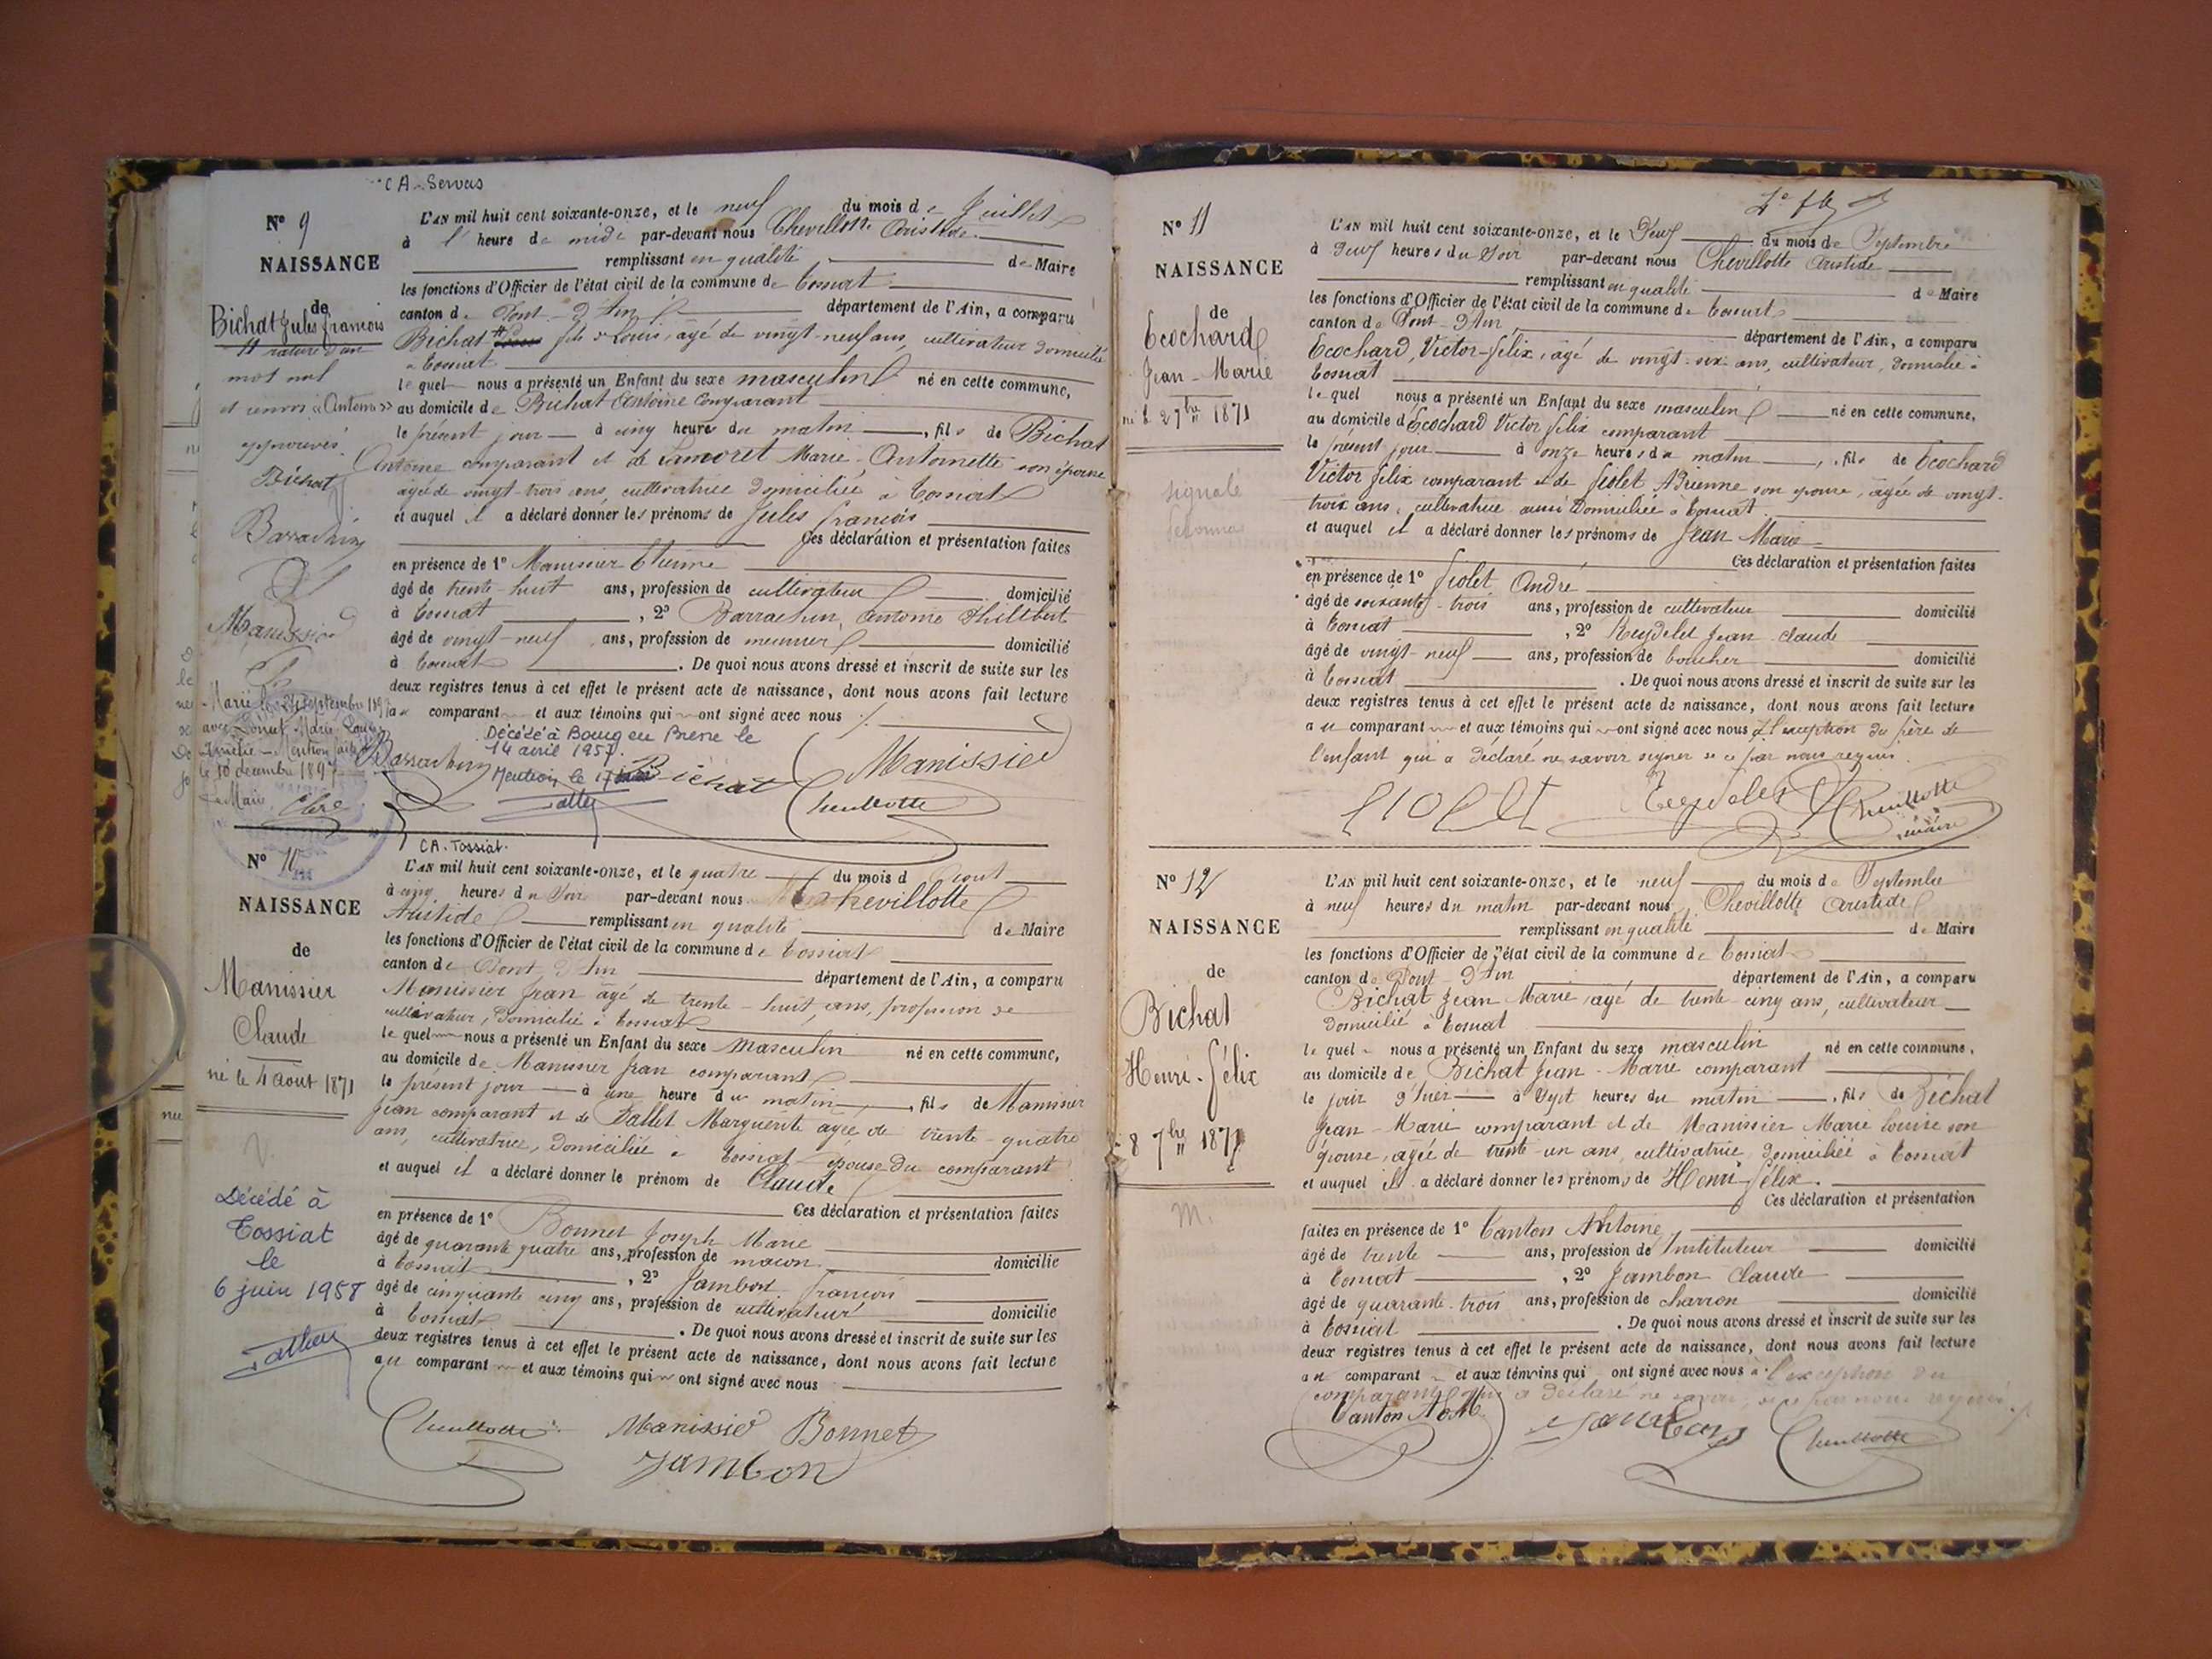 CA. Servas
N° 9
NAISSANCE
de
Bichat Jules françois
rature d'un
mot nul
et renvoi à Antoine
approuvés
Bichat
Barrachin
Manissier
Marié le septembre 189
avec Marie Louise
Mention faite
le 10 décembre 1897
Le Maire
L'AN mil huit cent soixante-onze, et le neuf du mois de Juillet
à l' heure de midi par-devant nous Chevillotte Aristide
remplissant en qualité de Maire
les fonctions d'Officier de l'état civil de la commune de Tossiat
canton de Pont-d'Ain département de l'Ain, a comparu
Bichat fils Louis, âgé de vingt-neuf ans, cultivateur domicilié
à Tossiat
lequel nous a présenté un Enfant du sexe masculin né en cette commune,
au domicile de Bichat Antoine comparant
le présent jour à cinq heures du matin, fils de Bichat
Antoine comparant et de Lamoret Marie-Antoinette son épouse
âgée de vingt-trois ans, cultivatrice domiciliée à Tossiat
et auquel il a déclaré donner les prénoms de Jules françois
Ces déclaration et présentation faites
en présence de 1° Manissier Etienne
âgé de trente-huit ans, profession de cultivateur domicilié
à Tossiat, 2° Barrachin, Antoine Philibert
âgé de vingt-neuf ans, profession de meunier domicilié
à Tossiat. De quoi nous avons dressé et inscrit de suite sur les
deux registres tenus à cet effet le présent acte de naissance, dont nous avons fait lecture
au comparant et aux témoins qui ont signé avec nous
Décédé à Bourg en Bresse le
14 avril 1957.
Mention le 17
Barrachin Bichat Manissier
Chevillotte
CA. Tossiat.
N° 10
NAISSANCE
de
Manissier
Claude
né le 4 août 1871
Décédé à
Tossiat
le
6 juin 1958
L'AN mil huit cent soixante-onze, et le quatre du mois d'août
à cinq heures du soir par-devant nous Chevillotte
Aristide remplissant en qualité de Maire
les fonctions d'Officier de l'état civil de la commune de Tossiat
canton de Pont d'Ain département de l'Ain, a comparu
Manissier Jean âgé de trente-huit ans, profession de
cultivateur, domicilié à Tossiat
lequel nous a présenté un Enfant du sexe masculin né en cette commune,
au domicile de Manissier Jean comparant
le présent jour à une heure du matin, fils de Manissier
Jean comparant et de Pallet Marguerite âgée de trente-quatre
ans, cultivatrice, domiciliée à Tossiat épouse du comparant
et auquel il a déclaré donner le prénom de Claude
Ces déclaration et présentation faites
en présence de 1° Bonnet Joseph Marie
âgé de quarante quatre ans, profession de maçon domicilié
à Tossiat, 2° Jambon françois
âgé de cinquante cinq ans, profession de cultivateur domicilié
à Tossiat. De quoi nous avons dressé et inscrit de suite sur les
deux registres tenus à cet effet le présent acte de naissance, dont nous avons fait lecture
au comparant et aux témoins qui ont signé avec nous
Chevillotte Manissié Bonnet
Jambon
N° 11
NAISSANCE
de
Ecochard
Jean-Marie
né le 2 7bre 1871
signalé
L'AN mil huit cent soixante-onze, et le Deux du mois de Septembre
à Deux heures du soir par-devant nous Chevillotte Aristide
remplissant en qualité de Maire
les fonctions d'Officier de l'état civil de la commune de Tossiat
canton de Pont-d'Ain département de l'Ain, a comparu
Ecochard, Victor-félix, âgé de vingt-six ans, cultivateur, domicilié à
Tossiat
lequel nous a présenté un Enfant du sexe masculin né en cette commune,
au domicile d'Ecochard Victor félix comparant
le présent jour à onze heures du matin, fils de Ecochard
Victor félix comparant et de fiolet Adrienne son épouse, âgée de vingt-
trois ans, cultivatrice aussi domiciliée à Tossiat
et auquel il a déclaré donner les prénoms de Jean Marie
Ces déclaration et présentation faites
en présence de 1° fiolet André
âgé de soixante-trois ans, profession de cultivateur domicilié
à Tossiat, 2° Reydelet Jean-Claude
âgé de vingt-neuf ans, profession de boucher domicilié
à Tossiat. De quoi nous avons dressé et inscrit de suite sur les
deux registres tenus à cet effet le présent acte de naissance, dont nous avons fait lecture
au comparant et aux témoins qui ont signé avec nous à l'exception du père de
l'enfant qui a déclaré ne savoir signer de ce par nous requis.
fiolet Reydelet Chevillotte
maire
N° 12
NAISSANCE
de
Bichat
Henri-félix
8 7bre 1871
M.
L'AN mil huit cent soixante-onze, et le neuf du mois de Septembre
à neuf heures du matin par-devant nous Chevillotte Aristide
remplissant en qualité de Maire
les fonctions d'Officier de l'état civil de la commune de Tossiat
canton de Pont-d'Ain département de l'Ain, a comparu
Bichat Jean Marie, âgé de trente-cinq ans, cultivateur
domicilié à Tossiat
lequel nous a présenté un Enfant du sexe masculin né en cette commune,
au domicile de Bichat Jean-Marie comparant
le jour d'hier à sept heures du matin, fils de Bichat
Jean-Marie comparant et de Manissier Marie Louise son
épouse, âgée de trente-un ans, cultivatrice, domiciliée à Tossiat
et auquel il a déclaré donner les prénoms de Henri félix.
Ces déclaration et présentation
faites en présence de 1° Canton Antoine,
âgé de trente ans, profession de Instituteur domicilié
à Tossiat, 2° Jambon Claude
âgé de quarante-trois ans, profession de charron domicilié
à Tossiat. De quoi nous avons dressé et inscrit de suite sur les
deux registres tenus à cet effet le présent acte de naissance, dont nous avons fait lecture
au comparant et aux témoins qui ont signé avec nous à l'exception du
comparant qui a déclaré ne savoir, de ce par nous requis.
Canton Jambon Chevillotte